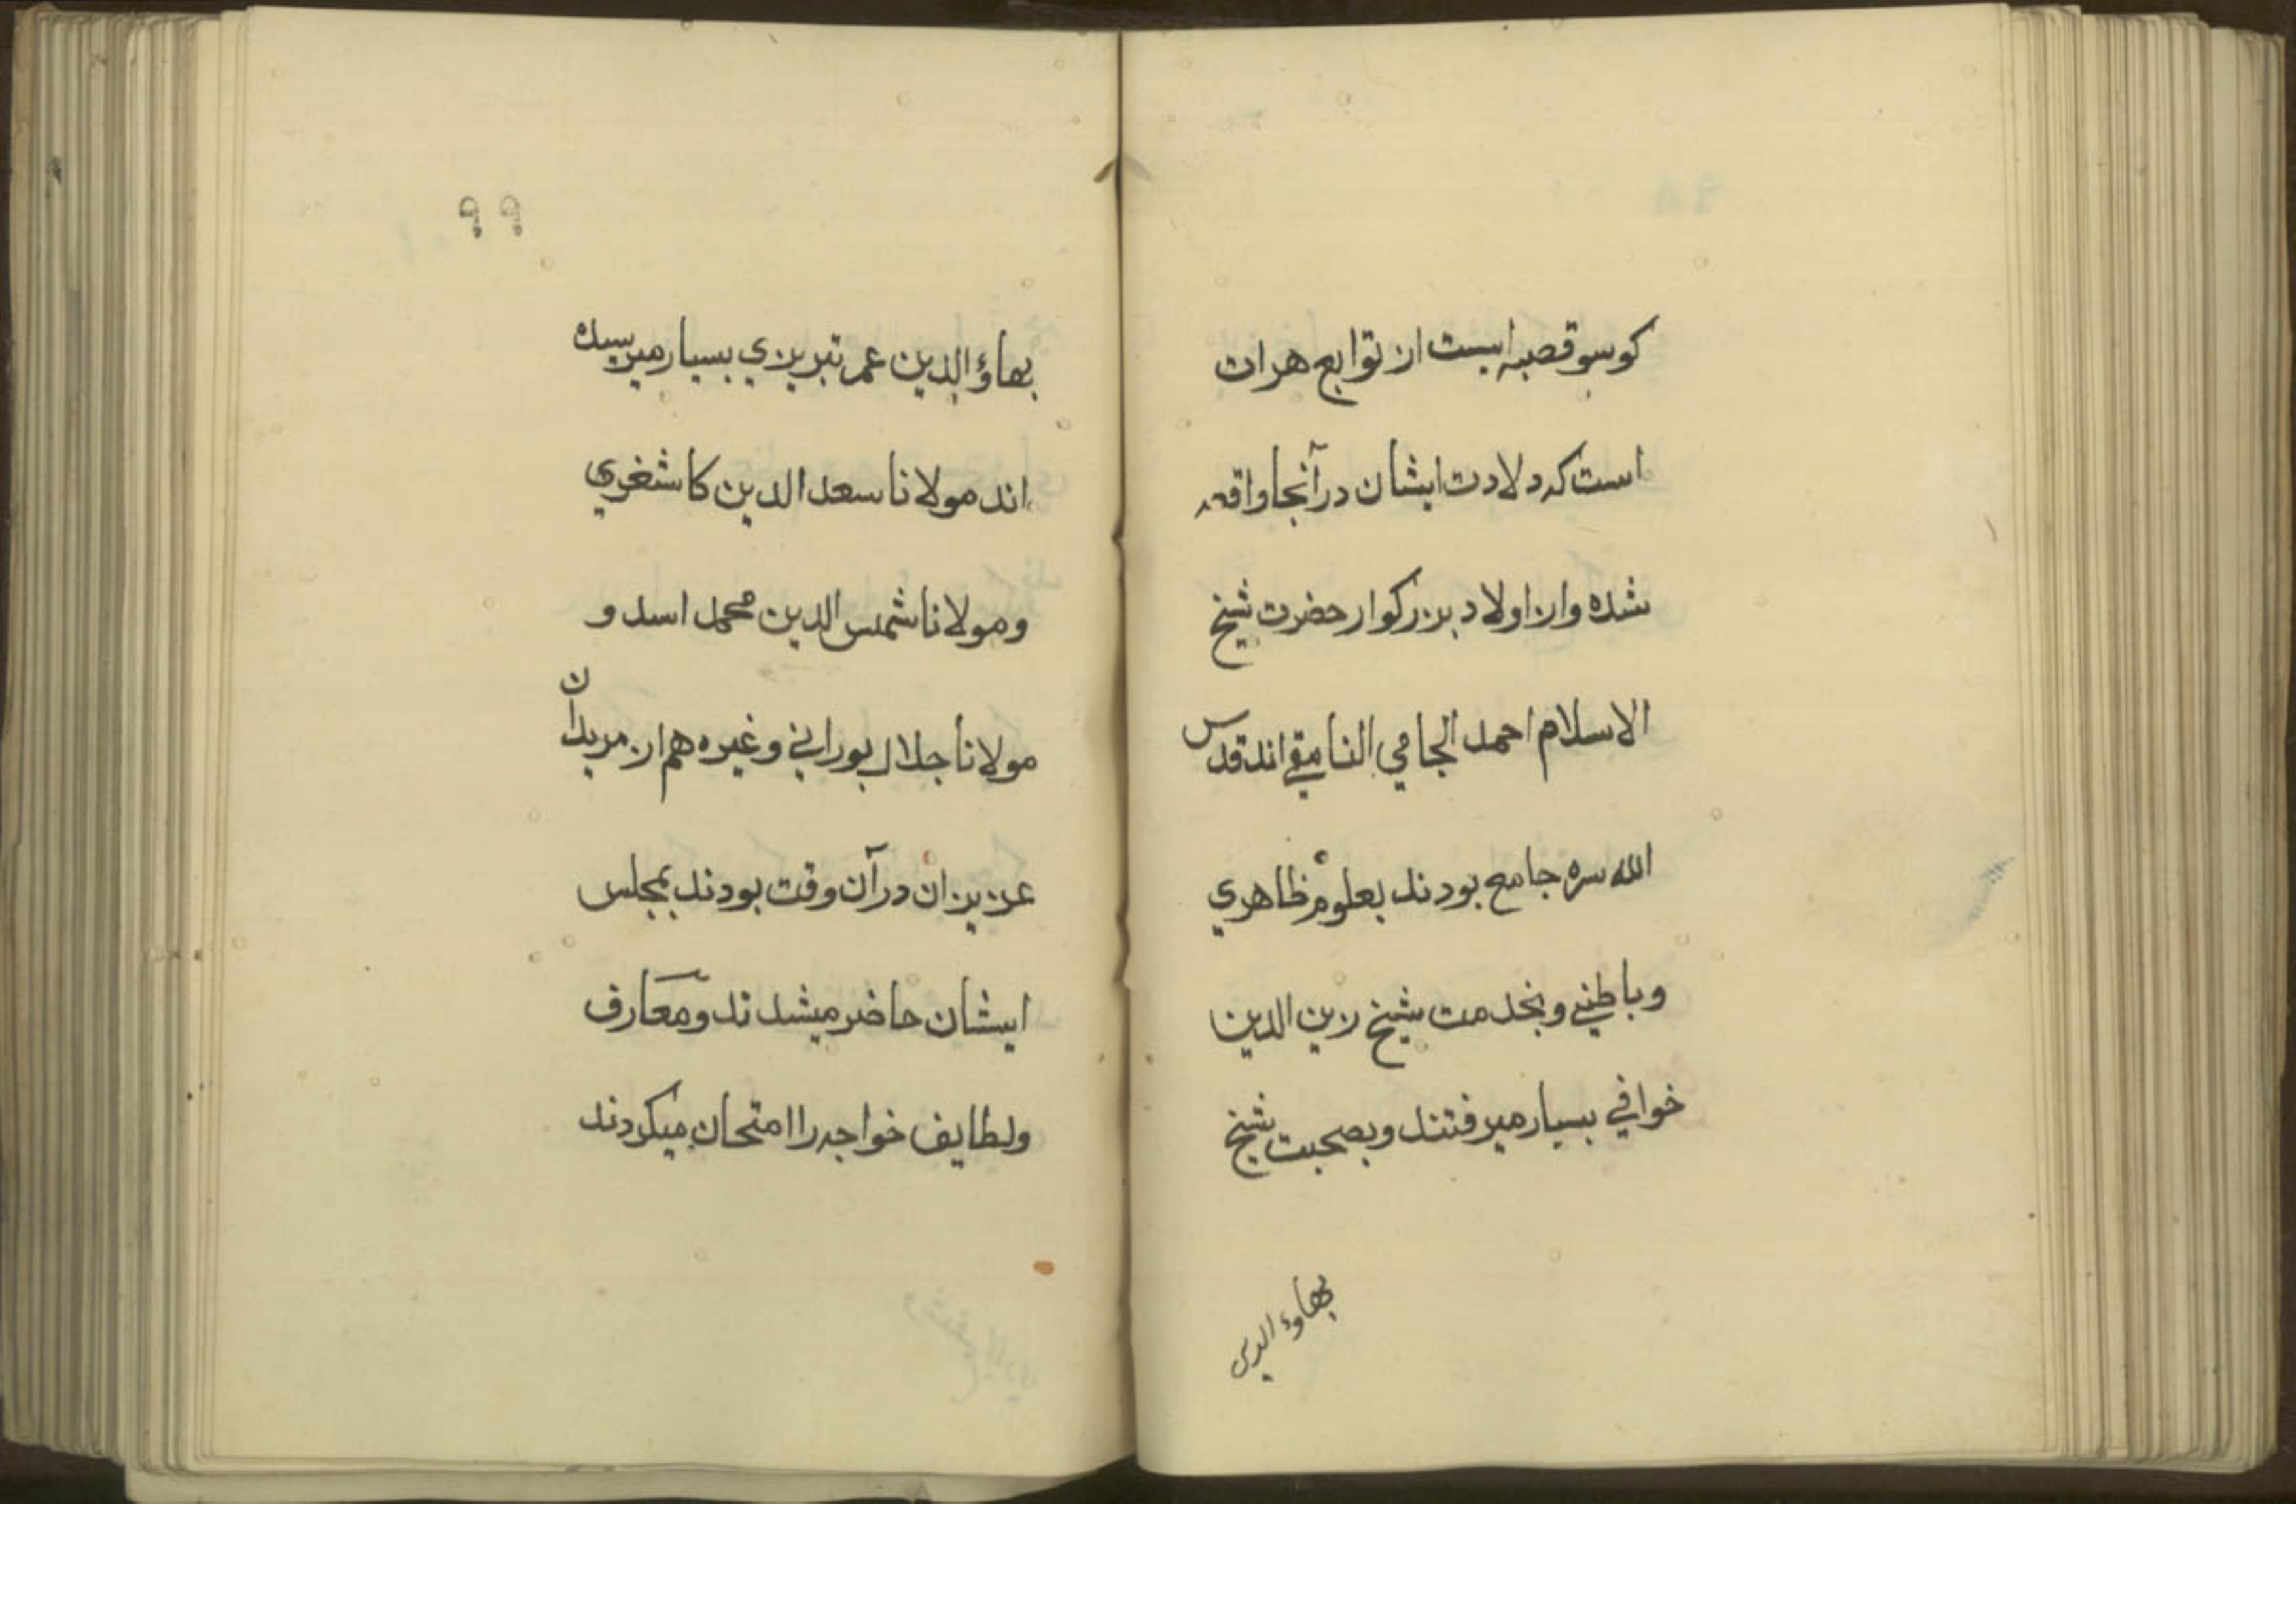 کوسو قصبه ایست از توابع هرات
است که ولادت ایشان در آنجا واقعه
شده و از اولاد بزرکوار حضرت شیخ
الاسلام احمد الجامي النامقي اند قدس
الله سره جامع بودند بعلوم ظاهري
و باطني و بخدمت شیخ زین الدین
خوافي بسیار میرفتند و بصحبت شیخ
بهاوء الدین
۹۹
بهاؤ الدین عمر تبریزي بسیار میرسیده
اند مولانا سعد الدین کاشغري
و مولانا شمس الدین محمد اسد و
مولانا جلال بوراني و غیره هم از مریدان
عزیزان در آن وقت بودند بمجلس
ایشان حاضر میشدند و معارف
و لطایف خواجه را امتحان میکردند